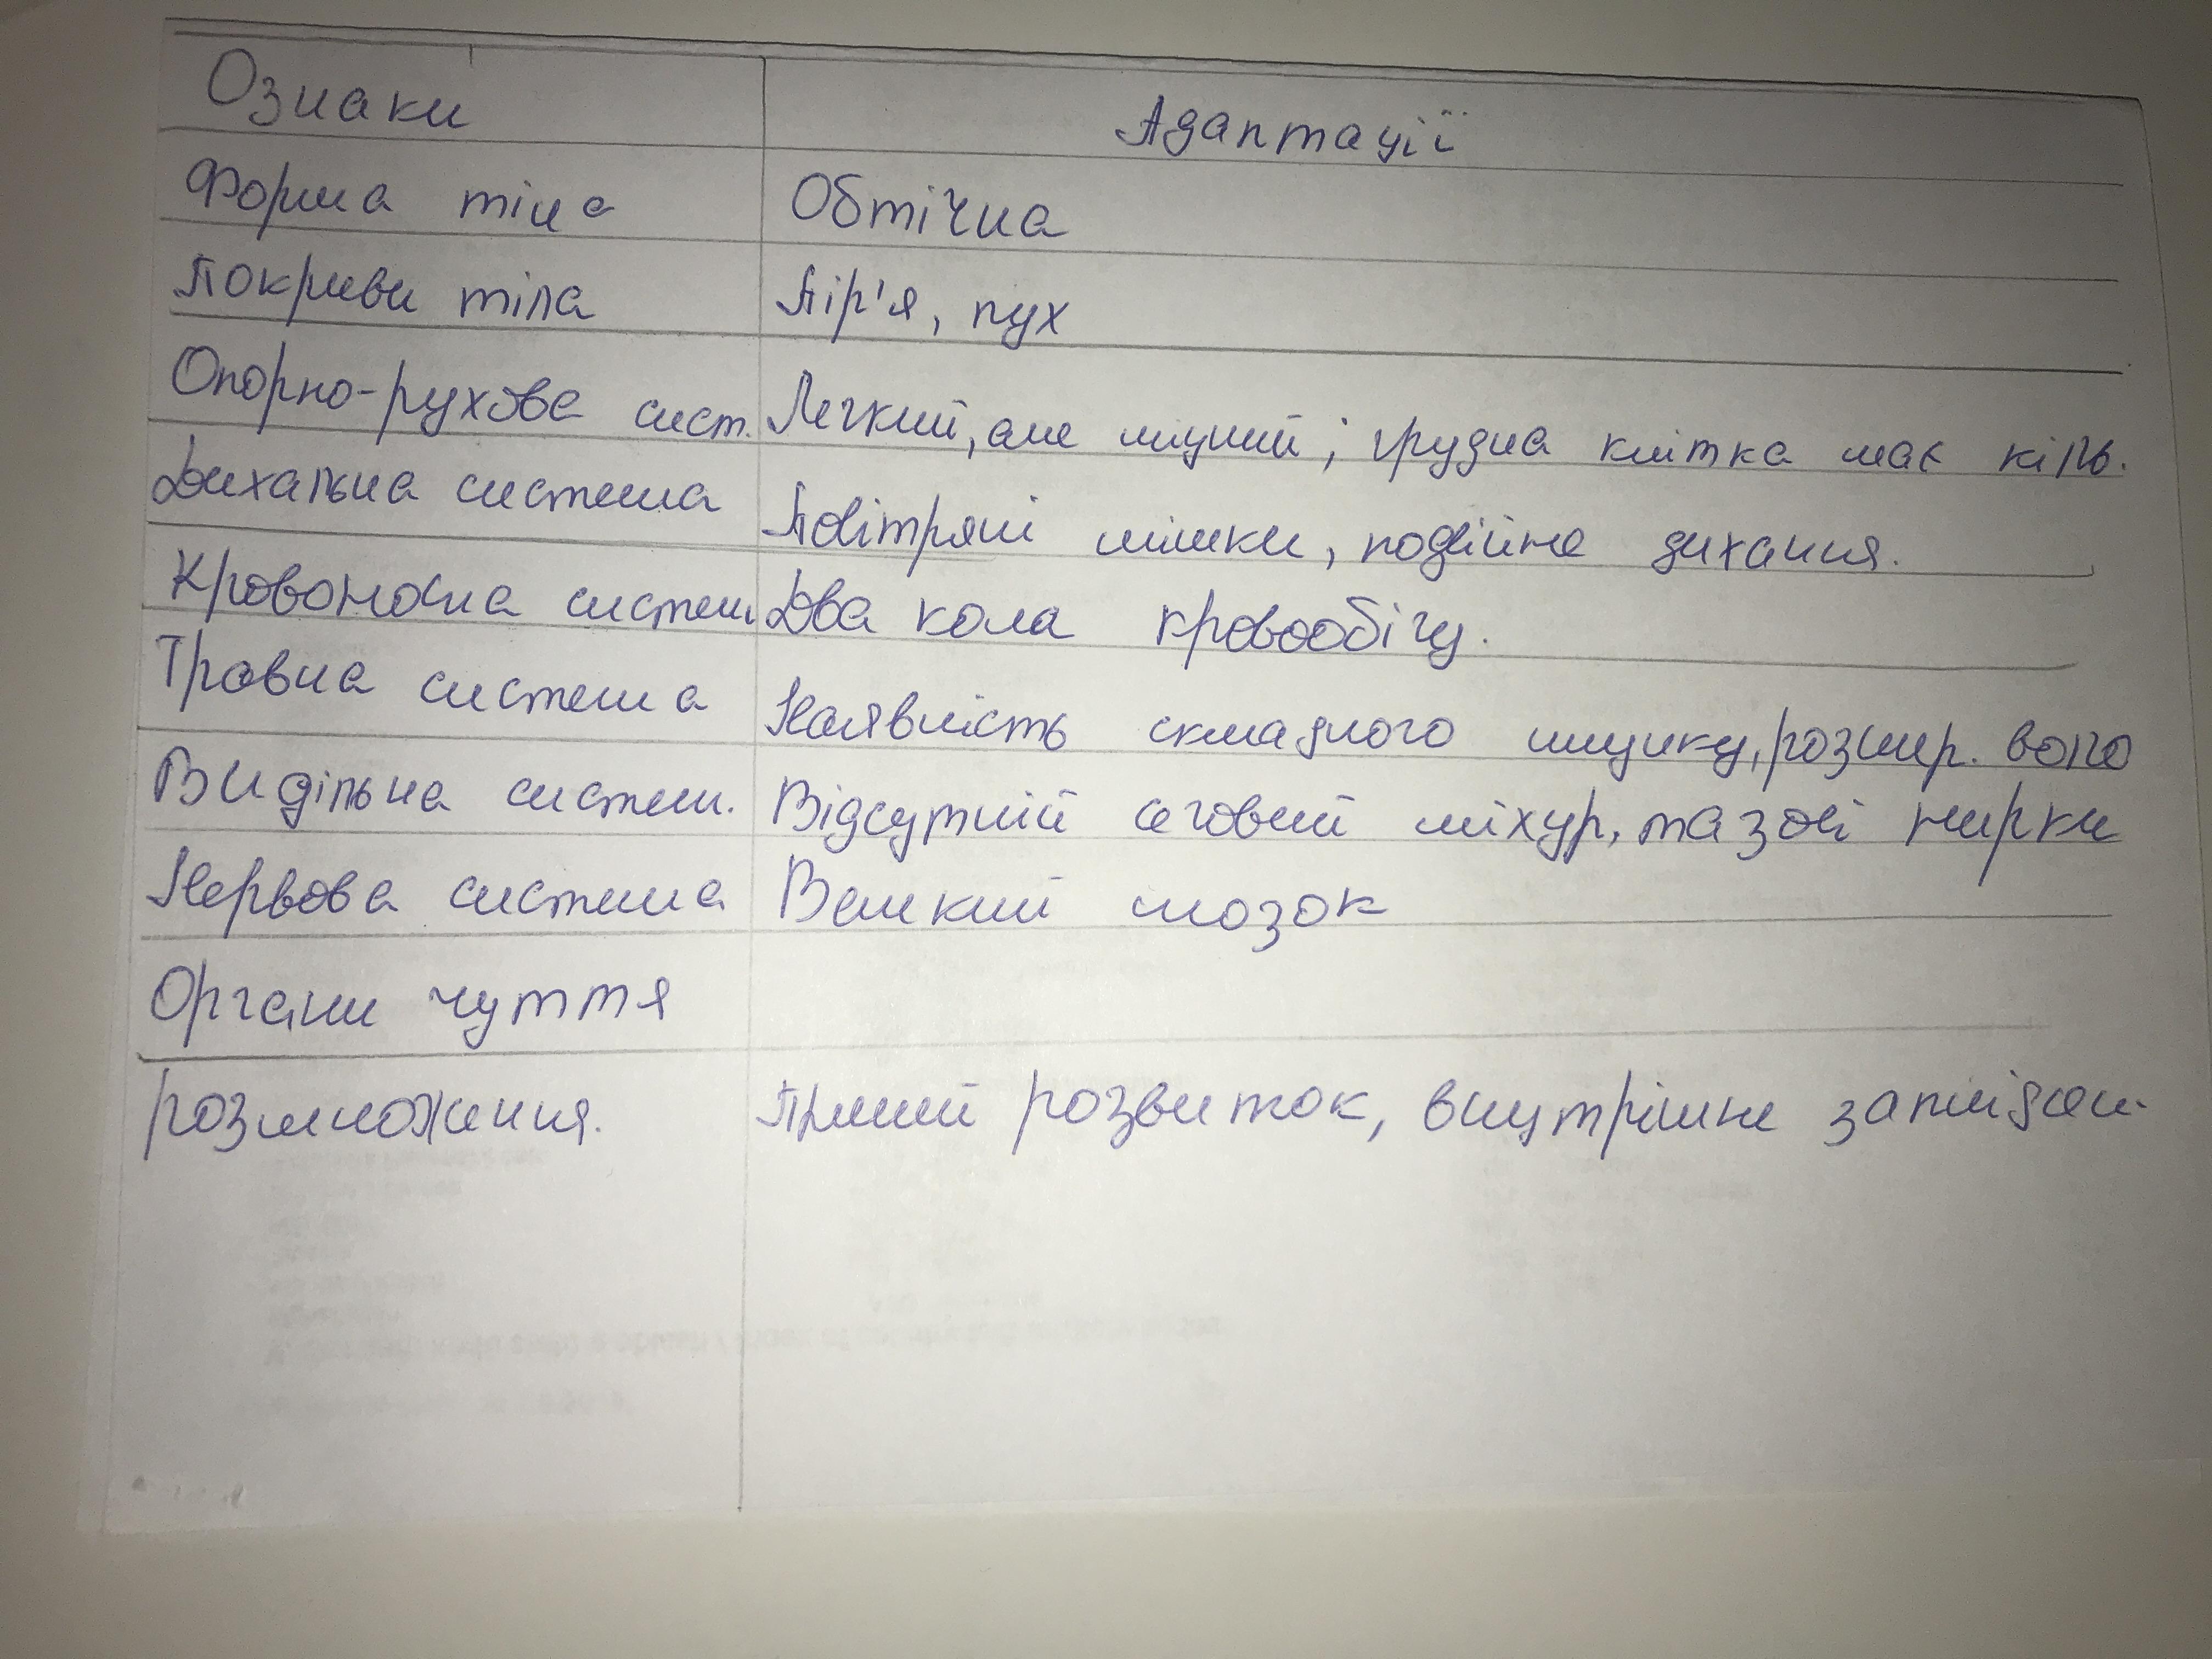 Ознаки Адаптації
Форма тіла Обтічна
Покриви тіла Пір'я, пух
Опорно-рухова сист. Легкий, але міцний; грудна клітка має кіль.
Дихальна система Повітряні мішки, подвійне дихання.
Кровоносна систем Два кола кровообігу.
Травна система Наявність складного шлунку, розшир. воло
Видільна систем. Відсутній сеговий міхур, тазові нирки
Нервова система Великий мозок
Органи чуття
розмноження. Прямий розвиток, внутрішнє запліднен.